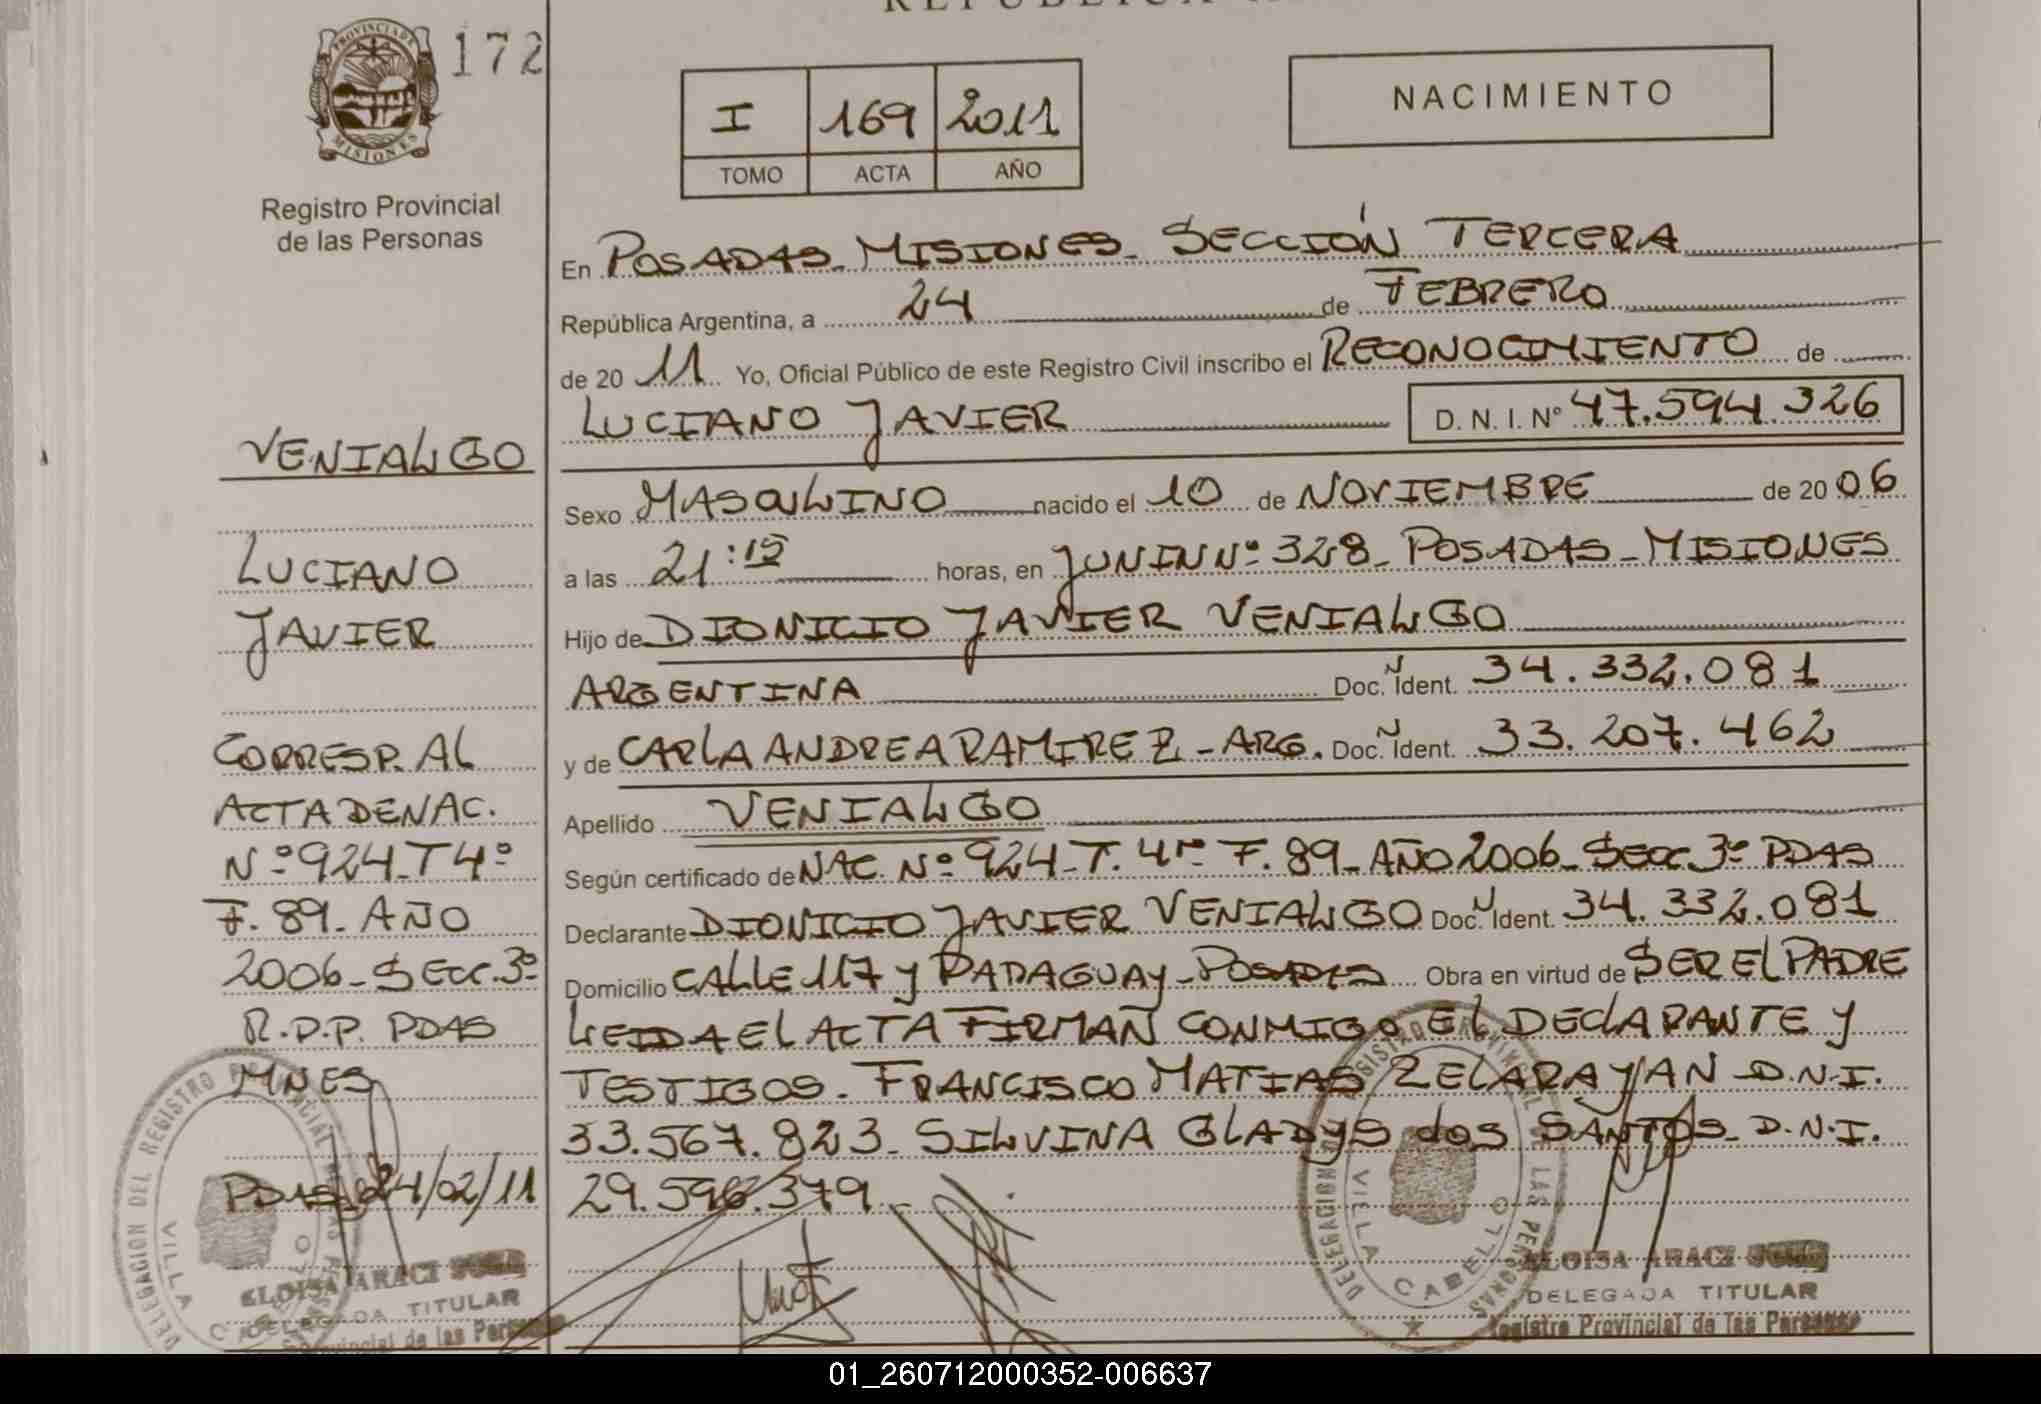 REPÚBLICA
PROVINCIA DE
MISIONES
172
I 169 2011
TOMO ACTA AÑO
NACIMIENTO
Registro Provincial
de las Personas
En POSADAS - MISIONES - SECCIÓN TERCERA
República Argentina, a 24 de FEBRERO
de 20 11 Yo, Oficial Público de este Registro Civil inscribo el RECONOCIMIENTO de
LUCIANO JAVIER D. N. I. Nº 47.594.326
Sexo MASCULINO nacido el 10 de NOVIEMBRE de 20 06
a las 21:15 horas, en JUNIN Nº 328 - POSADAS - MISIONES
Hijo de DIONICIO JAVIER VENIALGO
ARGENTINA Doc. Ident. 34.332.081
y de CARLA ANDREA RAMIREZ - ARG. Doc. Ident. 33.207.462
Apellido VENIALGO
Según certificado de NAC. Nº 924 - T. 4º F. 89 - AÑO 2006 - SECC 3º PDAS
Declarante DIONICIO JAVIER VENIALGO Doc. Ident. 34.332.081
Domicilio CALLE 117 y PARAGUAY - POSADAS Obra en virtud de SER EL PADRE
LEIDA EL ACTA FIRMAN CONMIGO EL DECLARANTE Y
TESTIGOS - FRANCISCO MATIAS ZELARAYAN D.N.I.
33.567.823 - SILVINA GLADYS dos SANTOS - D.N.I.
29.596.379
VENIALGO
LUCIANO
JAVIER
CORRESP. AL
ACTA DE NAC.
Nº 924 - T 4º
F. 89 - AÑO
2006 - SECC. 3º
R.P.P. PDAS
MNES
PDAS 24/02/11
DELEGACION DEL REGISTRO PROVINCIAL DE LAS PERSONAS
VILLA CABELLO
ELOISA ARACI
DELEGADA TITULAR
Provincial de las Personas
DELEGACION DEL REGISTRO PROVINCIAL DE LAS PERSONAS
VILLA CABELLO
ELOISA ARACI
DELEGADA TITULAR
Registro Provincial de las Personas
01_260712000352-006637